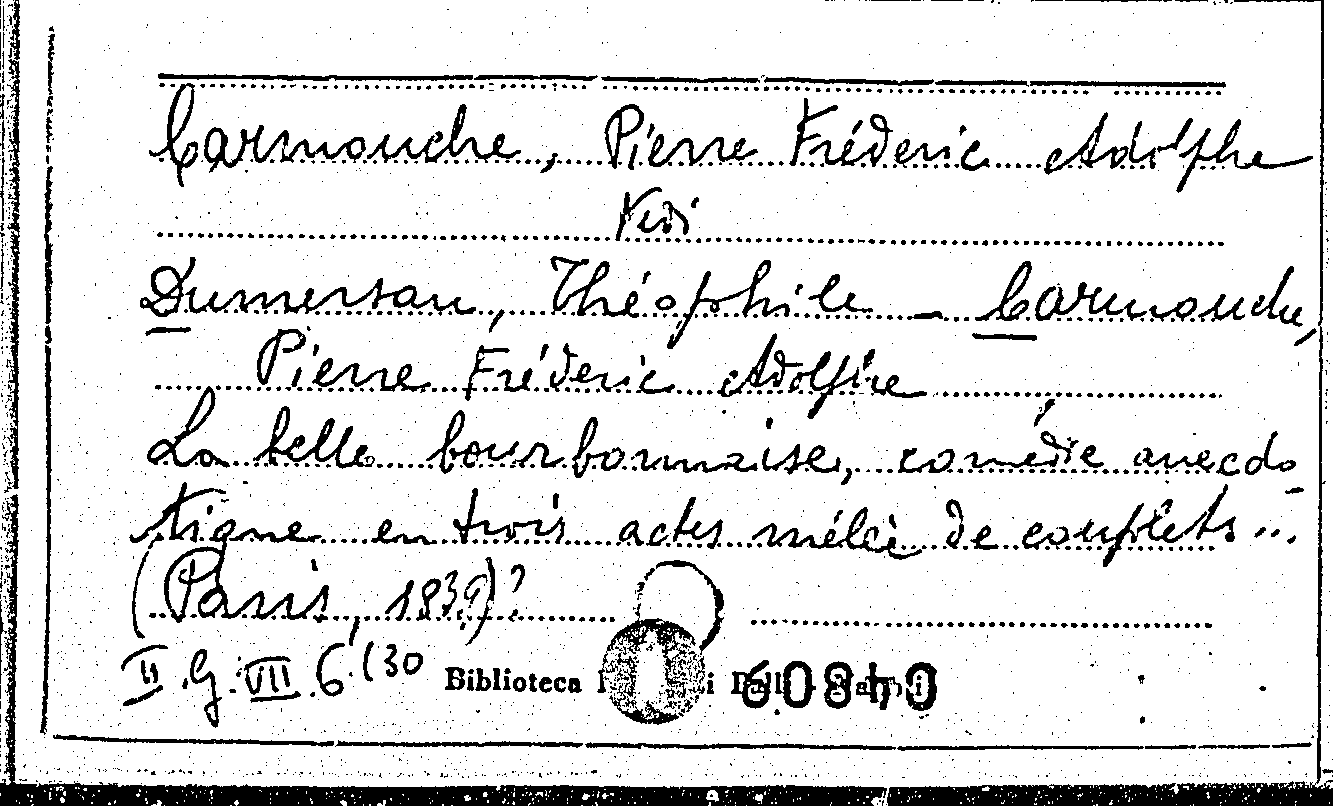 Carmouche, Pierre Fréderic Adolphe
Vedi
Dumersan, Théophile - Carmouche,
Pierre Fréderic Adolfhe
La belle bourbonnaise, comédie anecdo-
tique en trois actes mélée de couplets...
(Paris, 1839)?
II.G.VII.6(30 Biblioteca 60840